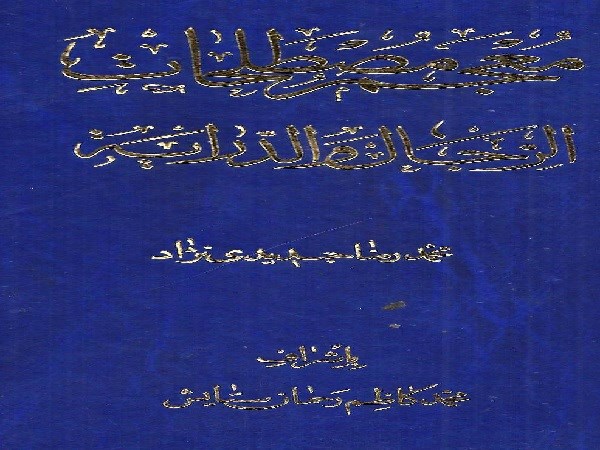 معجم مصطلحات
الرجال والدراية
محمد رضا جديدي نژاد
بإشراف
محمد كاظم رحمان ستايش